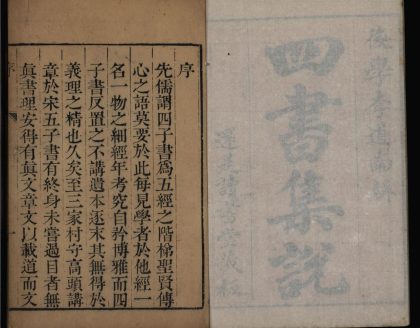 學李道南輯
四書集說
藏板
序
先儒謂四子書為五經之階梯聖賢傳
心之語莫要於此每見學者於他經一
名一物之細經年考究自矜博雅而四
子書反置之不講遺本逐末其無得於
義理之精也久矣至三家村守高頭講
章於宋五子書有終身未嘗過目者無
眞書理安得有眞文章文以載道而文
序 一